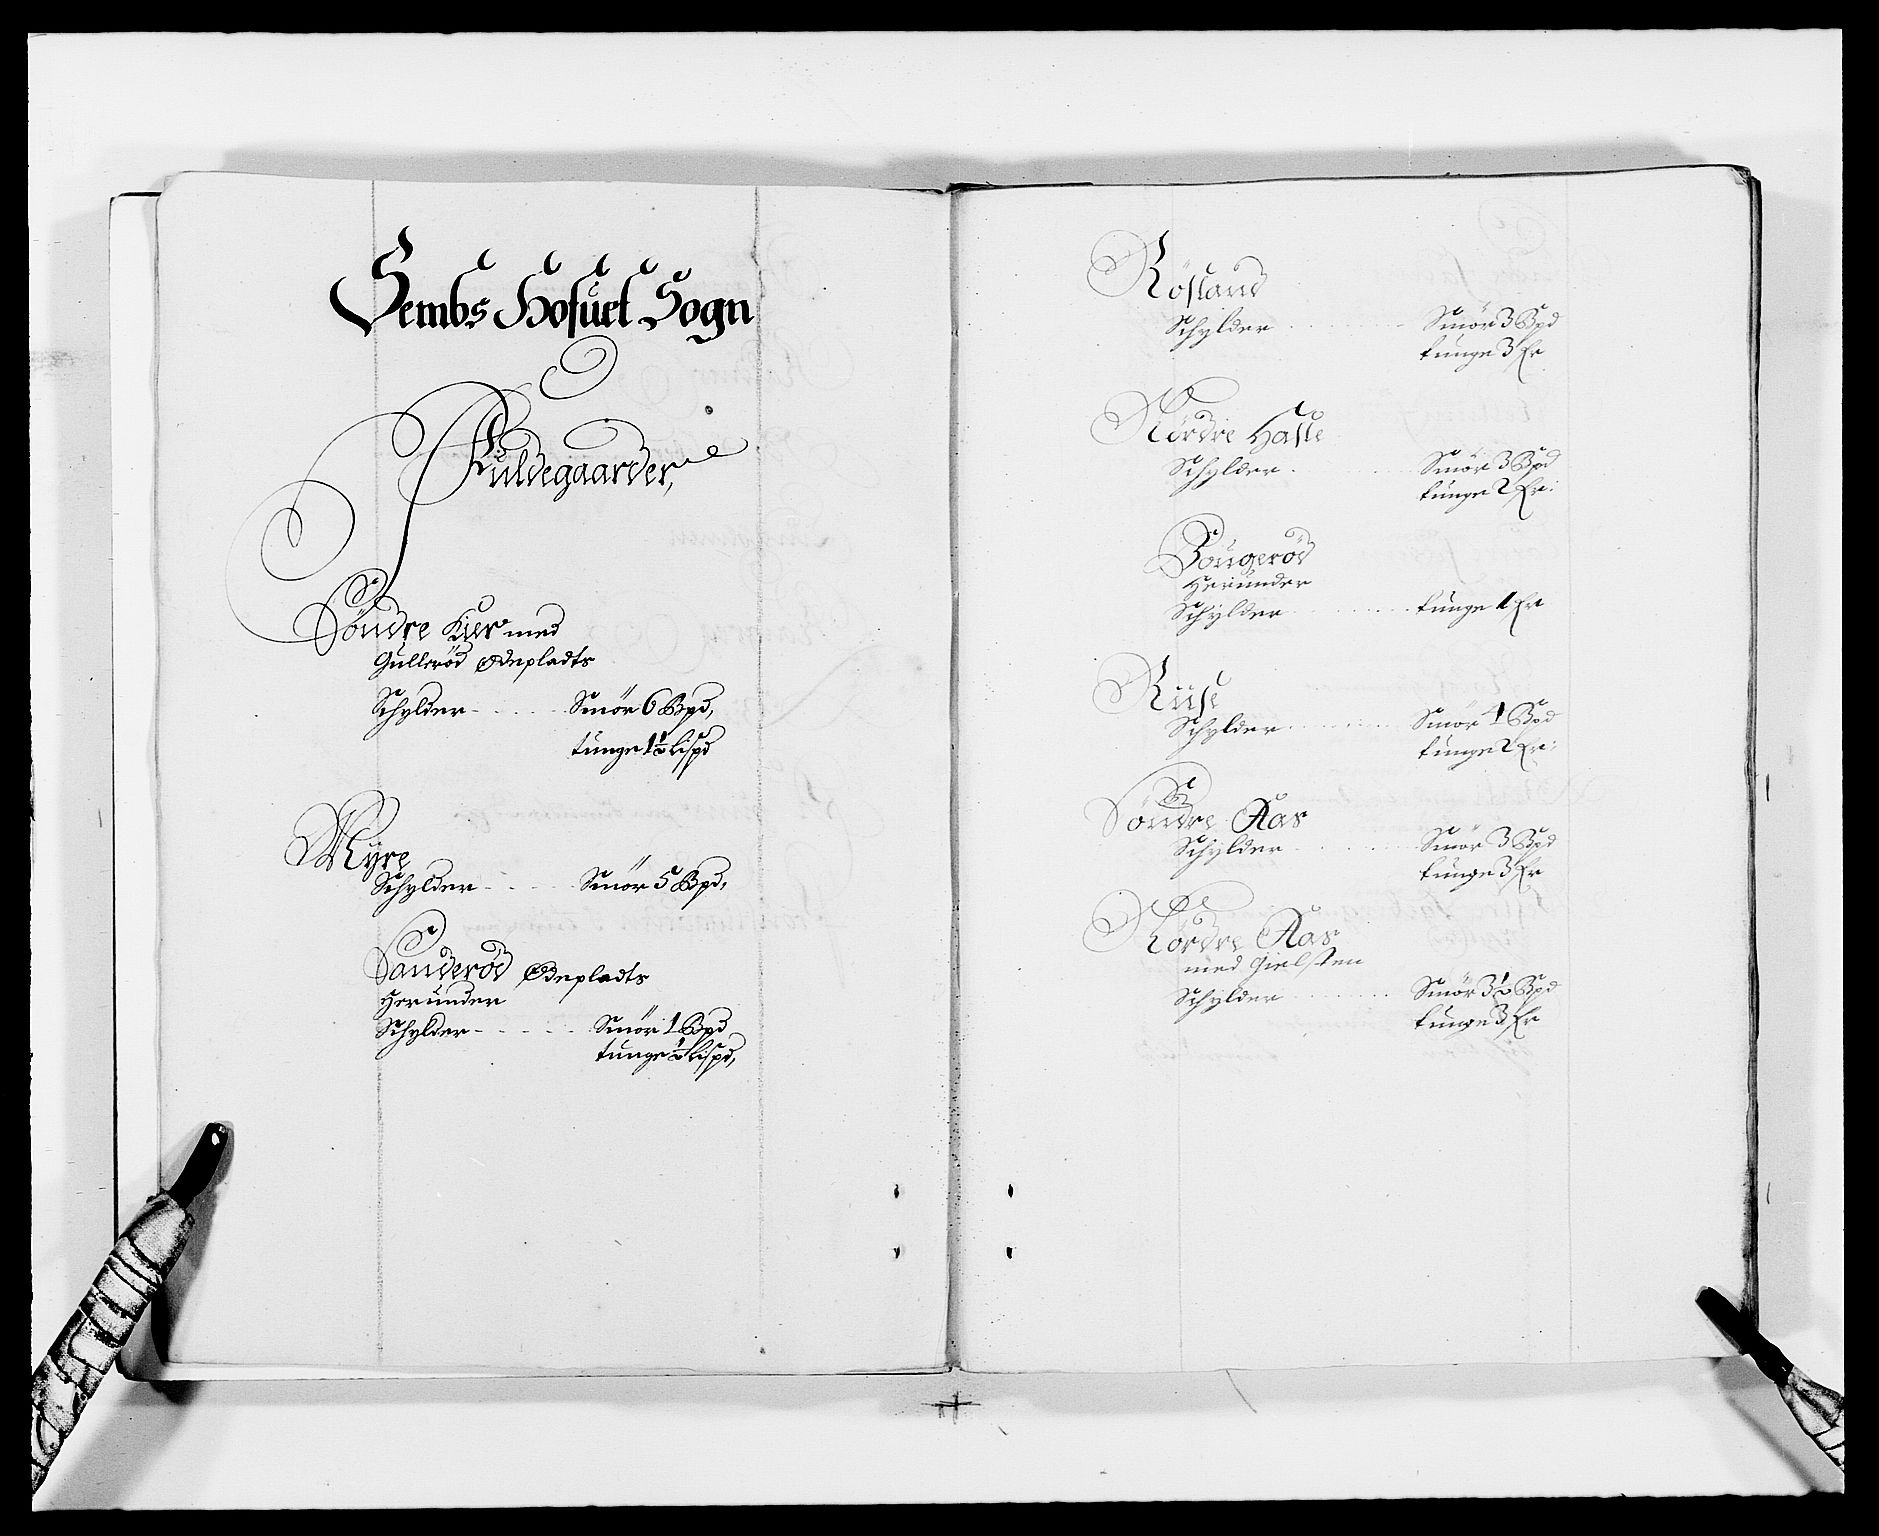 Sembs Hofuet Sogn
Fuldegaarder,
Söndre Kier med
Gulleröd Ödepladts
Schylder - - - - - Smör 6 Bpd,
tunge 1½ Lispd
Myre
Schylder - - - - Smör 5 Bpd,
Sanderöd Ödepladts
Herunder
Schylder - - - - - Smör 1 Bpd
tunge ½ Lispd,
Rösland
Schylder . . . . . . . . Smör 3 Bpd
tunge 3 Fr
Nördre Hasle
Schylder . . . . . . Smör 3 Bpd
tunge 2 Fr:
Bougeröd
Herunder
Schylder . . . . . . . . tunge 1 Fr
Riise
Schylder . . . . . . . Smör 4 Bpd
tunge 2 Fr:
Söndre Aas
Schylder . . . . . . . Smör 3 Bpd
tunge 3 Fr
Nördre Aas
med Gielsten
Schylder . . . . . . . Smör 3½ Bpd
tunge 3 Fr